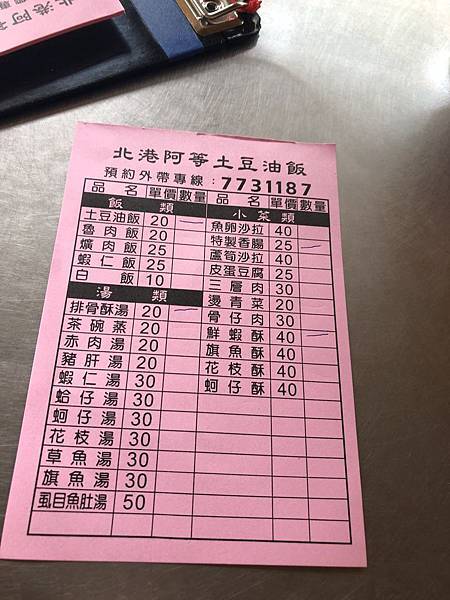 北港阿
北港阿等土豆油飯
預約外帶專線：7731187
品名 單價 數量 品名 單價 數量
飯類
土豆油飯 20 一
魯肉飯 20
爌肉飯 25
蝦仁飯 25
白飯 10
湯類
排骨酥湯 20 一
茶碗蒸 20
赤肉湯 20
豬肝湯 20
蝦仁湯 30
蛤仔湯 30
蚵仔湯 30
花枝湯 30
草魚湯 30
旗魚湯 30
虱目魚肚湯 50
小菜類
魚卵沙拉 40
特製香腸 25 一
蘆筍沙拉 40
皮蛋豆腐 25
三層肉 30
燙青菜 20
骨仔肉 30
鮮蝦酥 40 一
旗魚酥 40
花枝酥 40
蚵仔酥 40